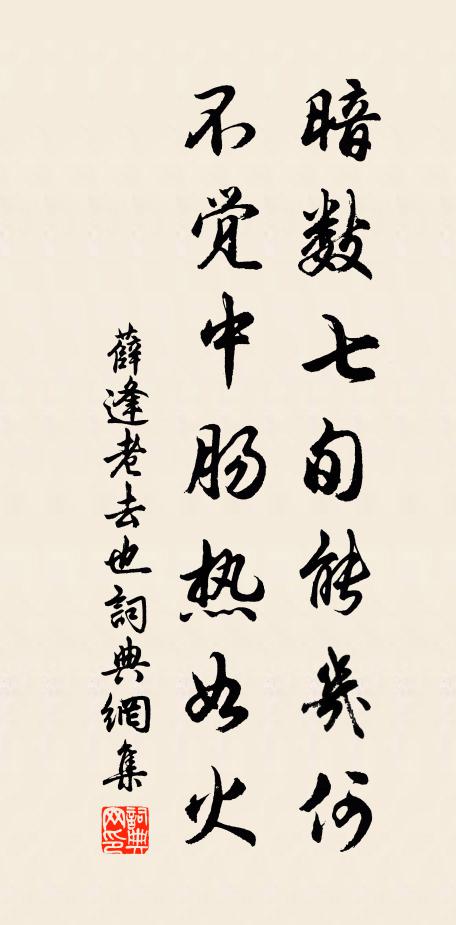 暗数七旬能幾何
不觉中肠热如火
薛逢老去也詞典網集
詞典网印